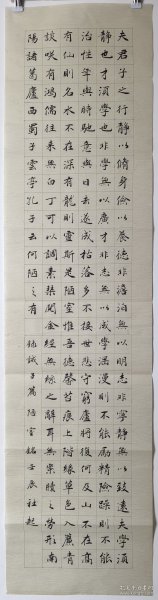 夫君子之行靜以脩身儉以養德非澹泊無以明志非寧靜無以致遠夫學須
靜也才須學也非學無以廣才非志無以成學漫則不能勵精險躁則不能
治性年與時馳意與日去遂成枯落多不接世悲守窮廬將復何及山不在高
有仙則名水不在深有龍則靈斯是陋室惟吾德馨苔痕上階綠草色入簾青
談笑有鴻儒往來無白丁可以調素琴閱金經無絲之亂耳無案牘之勞形南
陽諸葛廬西蜀子雲亭孔子云何陋之有 誡子篇陋室銘壬辰社起